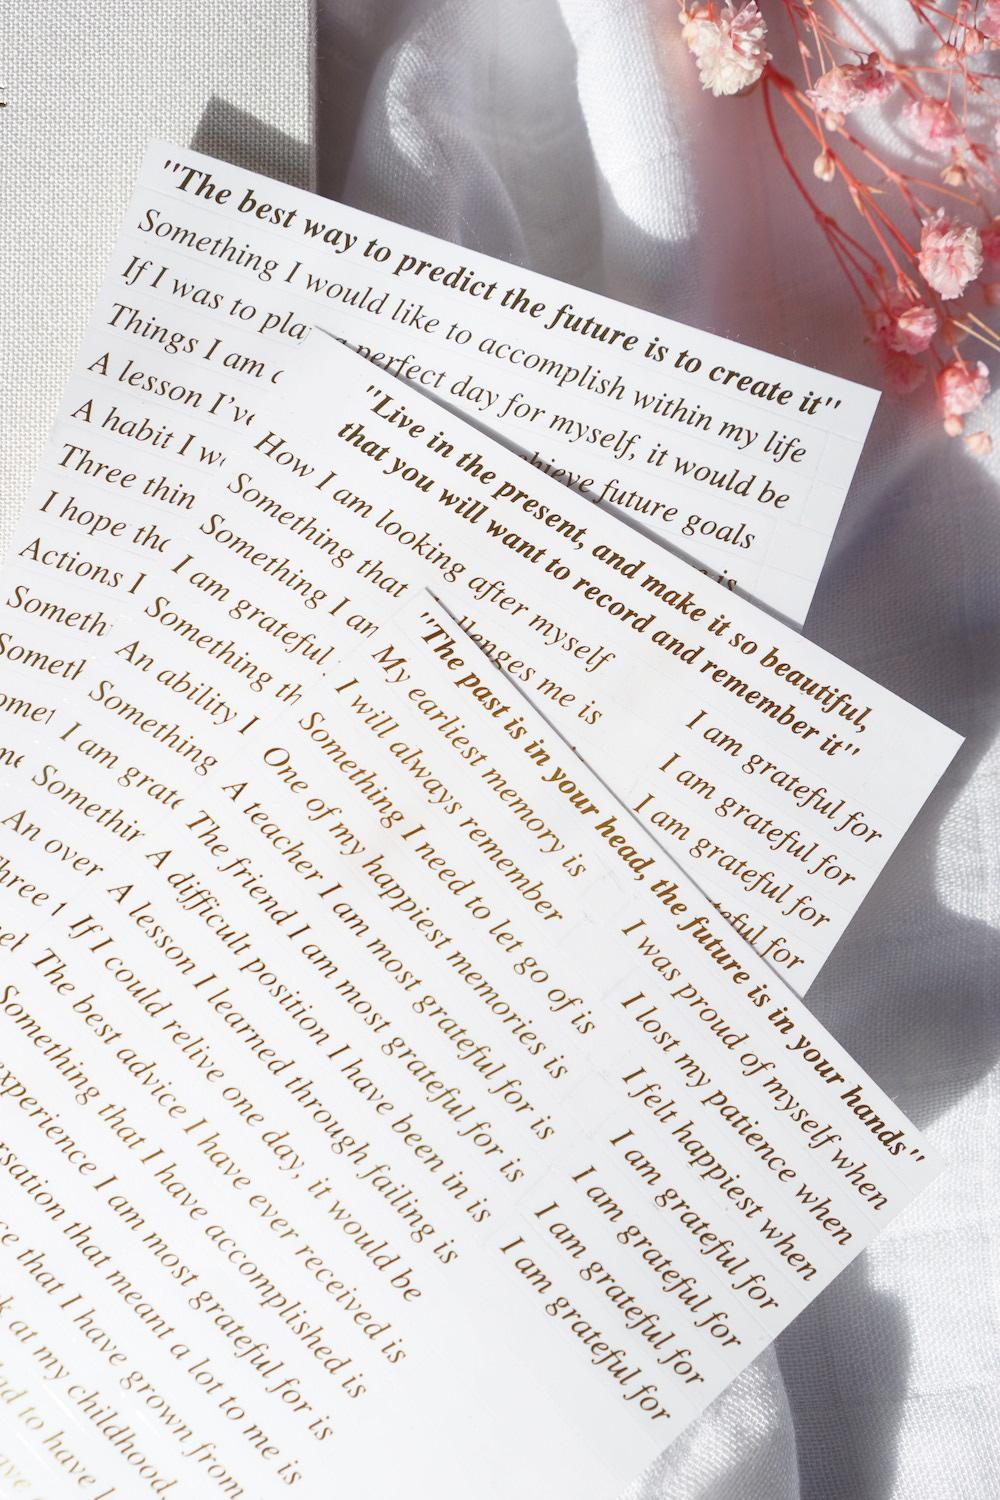 "The best way to predict the future is to create it"
Something I would like to accomplish within my life
If I was to plan a perfect day for myself, it would be
Things I am
achieve future goals
A lesson I've
is
A habit I
Three
I hope
Actions I
An over
"Live in the present, and make it so beautiful,
that you will want to record and remember it"
How I am looking after myself
Something that
challenges me is
Something I am
I am grateful
Something
An ability I
Something
I am
I am grateful for
I am grateful for
I am grateful for
for
"The past is in your head, the future is in your hands"
My earliest memory is
I will always remember
Something I need to let go of is
One of my happiest memories is
A teacher I am most grateful for is
The friend I am most grateful for is
A difficult position I have been in is
A lesson I learned through failing is
If I could relive one day, it would be
The best advice I have ever received is
Something that I have accomplished is
experience I am most grateful for is
that meant a lot to me is
that I have grown from
at my childhood,
to have
I was proud of myself when
I lost my patience when
I felt happiest when
I am grateful for
I am grateful for
I am grateful for
I am grateful for